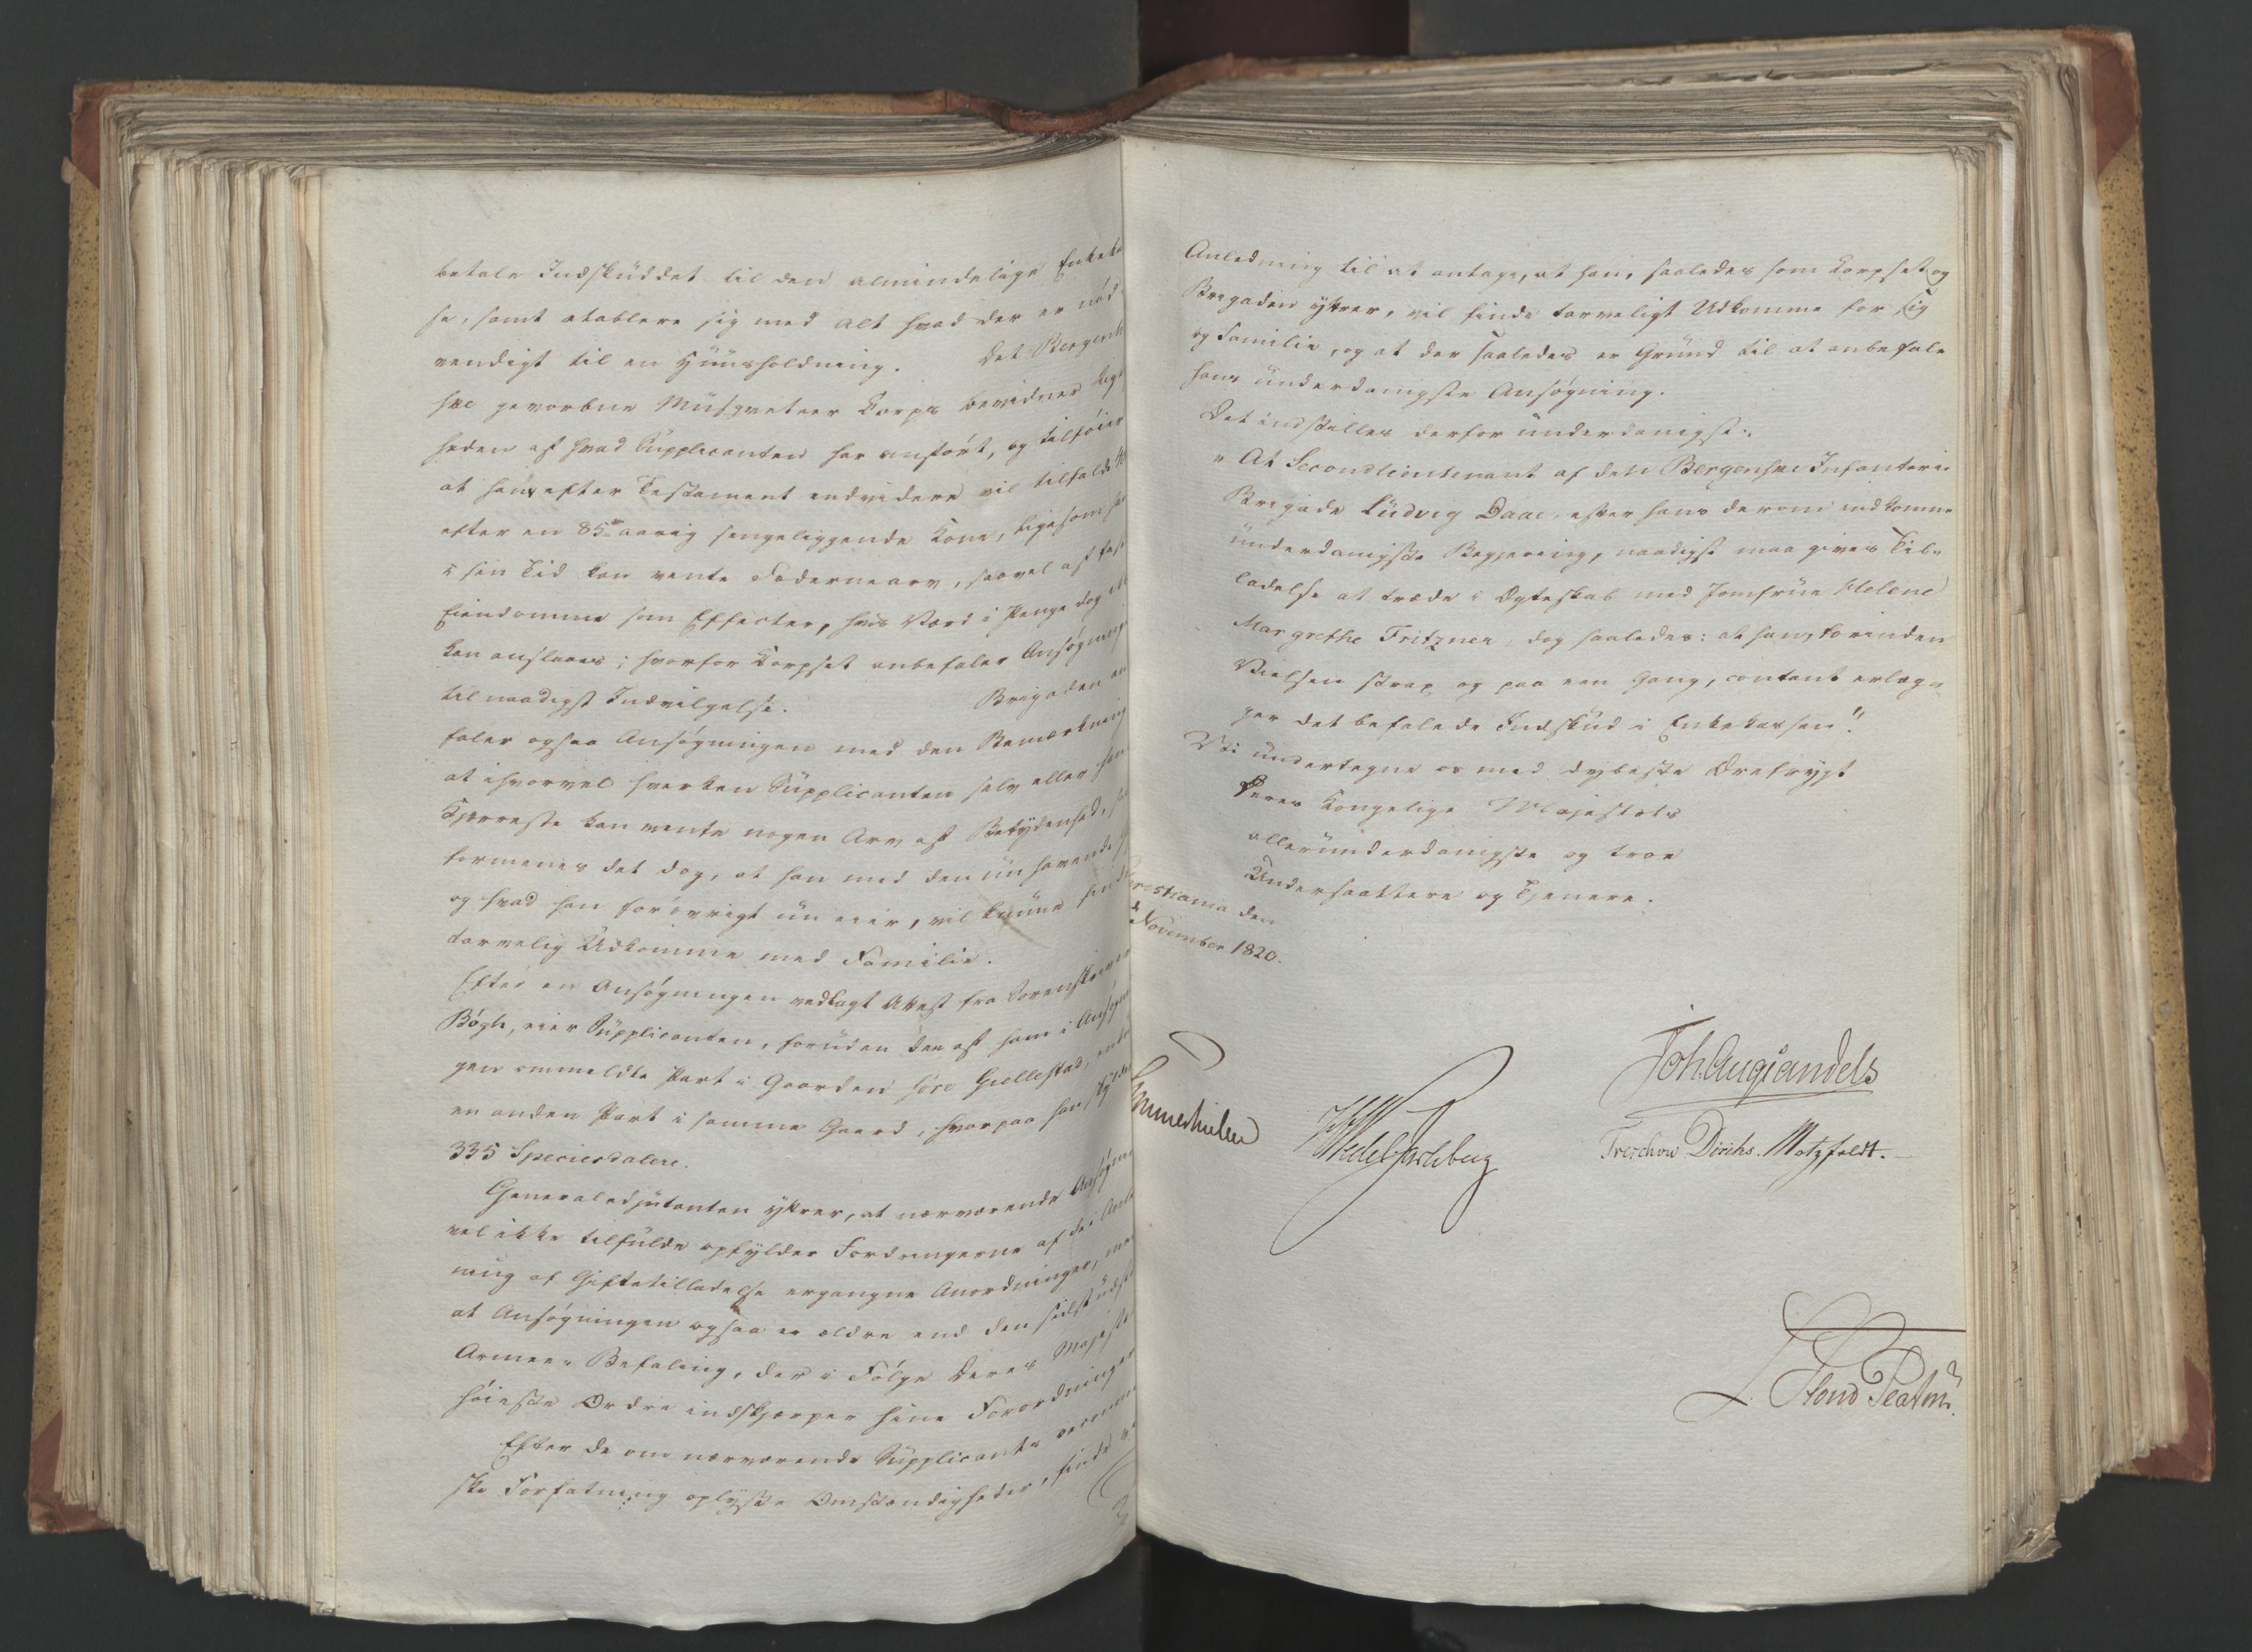 betale Indskuddet til den almindelige Enkeka
se, samt etablere sig med alt hvad der er nød
vendigt til en Huusholdning. Det Bergenh
ske gevorbne Musqveteer Corps bevidner Rigt
heden af hvad Supplicanten har anført, og tilføier
at ham efter Testament endvidere vil tilfalde
efter en 85 aarig sengeliggende Kone, ligesom han
i sin Tid kan vente Fædrenearv, saavel af faste
Eiendomme som Effecter, hvis Værd i Penge dog ei
kan anslaaes; hvorfor Corpset anbefaler Ansøgningen
til naadigst Indvilgelse. Brigaden an
faler ogsaa Ansøgningen med den Bemærkning
at ihvorvel hverken Supplicanten selv eller hans
Kjæreste kan vente nogen Arv af Betydenhed, saa
formenes det dog, at han med den nu havende
og hvad han forøvrigt nu eier, vil kunne finde
tarvelig Udkomme med Familie.
Efter en Ansøgningen vedlagt Attest fra Sorenskriver
Bøgh, eier Supplicanten, foruden den af ham i Ansøgnin
gen ommeldte Part i Gaarden søre Gjellestad, endnu
en anden Part i samme Gaard, hvorpaa han skylder
335 Speciesdalere.
Generaladjutanten yttrer, at nærværende Ansøgning
vel ikke tilfulde opfylder Fordringerne af de i Anled
ning af Giftetilladelse ergangne Anordninger, men
at Ansøgningen ogsaa er ældre end den sidst udst
Armee-Befaling, der i Følge Deres Majestæts
høieste Ordre indskjærper hine Forordninger
Efter de om nærværende Supplicants oeconomi
ske Forfatning oplyste Omstændigheder, finde vi
Anledning til at antage, at han, saaledes som Corpset og
Brigaden yttrer, vil finde tarveligt Udkomme for sig
og Familie, og at der saaledes er Grund til at anbefale
hans underdanigste Ansøgning.
Det indstilles derfor underdanigst:
"At Secondlieutenant af det Bergenske Infanterie
Brigade Ludvig Daae, efter hans derom indkomne
underdanigste Begjering, naadigst maa gives Til-
ladelse at træde i Ægteskab med Jomfrue Helene
Margrethe Fritzner, dog saaledes: at han forinden
Vielsen strax og paa een Gang, contant erlæg-
ger det befalede Indskud i Enkekassen".
Vi undertegne os med dybeste Ærefrygt
Deres Kongelige Majestæts
allerunderdanigste og troe
Undersaattere og Tjenere.
ristiania den
November 1820.
Joh. Aug. Sandels
Sommerhielm WedelJarlsberg Treschow Diriks. Motzfeldt.